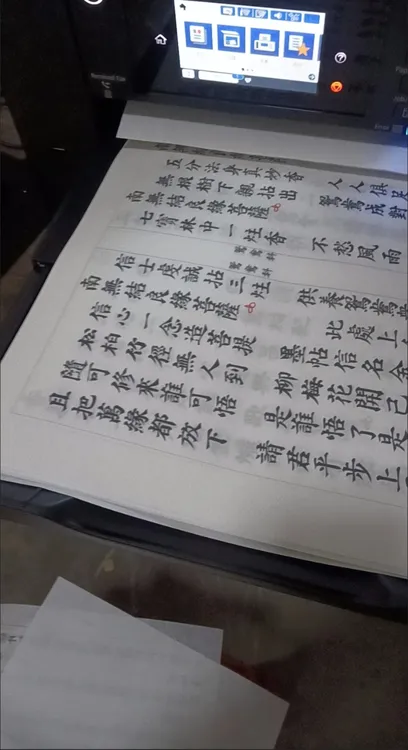 五分法身真妙香
無根樹下親拈出
南無結良緣菩薩
七寶林中一炷香
鴛鴦科
鴛鴦科
信士虔誠拈三炷
南無結良緣菩薩
信心一念造菩提
松柏竹徑無人到
隨可修來誰可悟
且把萬緣都放下
人人俱足
鴛鴦成對
不愁風雨
供養鴛鴦無
此處上金
墨帖信名
柳梅花開已
是誰悟了是
請君平步上